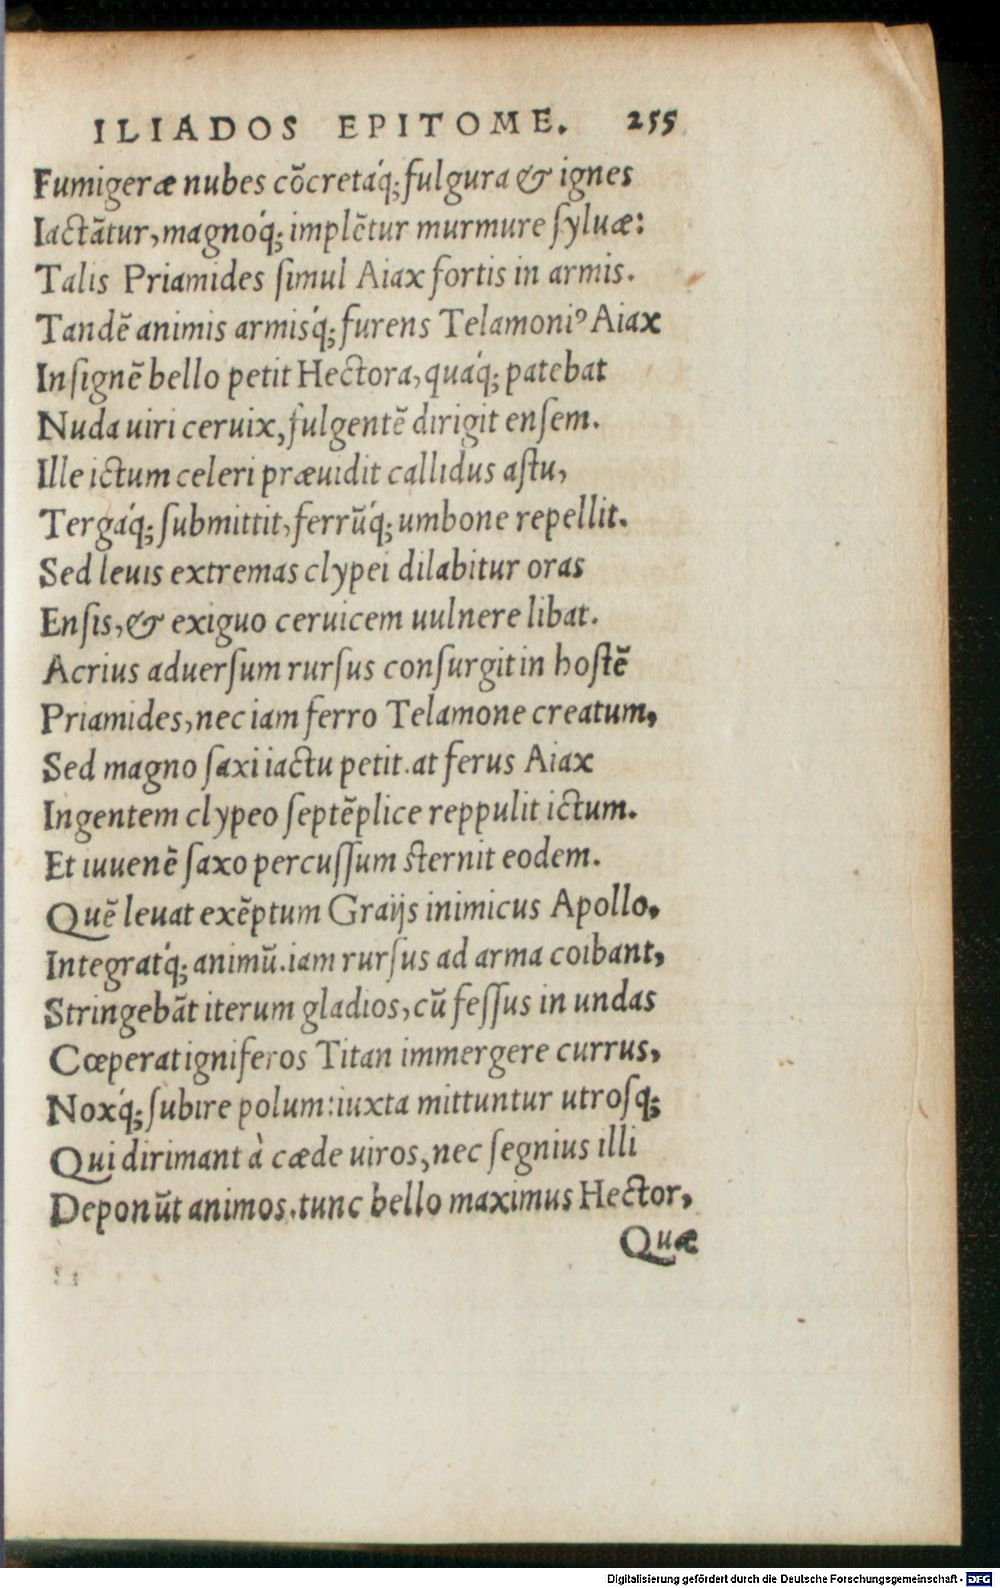 ILIADOS EPITOME. 255
Fumigeræ nubes cõcretáq́; fulgura & ignes
Iactãtur, magnoq́; implẽtur murmure ſyluæ:
Talis Priamides ſimul Aiax fortis in armis.
Tandẽ animis armisq́; furens Telamoniꝰ Aiax
Inſignẽ bello petit Hectora, quáq́; patebat
Nuda uiri ceruix, fulgentẽ dirigit enſem.
Ille ictum celeri præuidit callidus aſtu,
Tergáq́; ſubmittit, ferrũq́; umbone repellit.
Sed leuis extremas clypei dilabitur oras
Enſis, & exiguo ceruicem uulnere libat.
Acrius aduerſum rurſus conſurgit in hoſtẽ
Priamides, nec iam ferro Telamone creatum,
Sed magno ſaxi iactu petit. at ferus Aiax
Ingentem clypeo ſeptẽplice reppulit ictum.
Et iuuenẽ ſaxo percuſſum ſternit eodem.
Quẽ leuat exẽptum Graijs inimicus Apollo.
Integratq́; animũ. iam rurſus ad arma coibant,
Stringebãt iterum gladios, cũ feſſus in undas
Cœperat igniferos Titan immergere currus,
Noxq́; ſubire polum: iuxta mittuntur utroſq;
Qui dirimant à cæde uiros, nec ſegnius illi
Deponũt animos. tunc bello maximus Hector,
Quæ
Digitalisierung gefördert durch die Deutsche Forschungsgemeinschaft - DFG